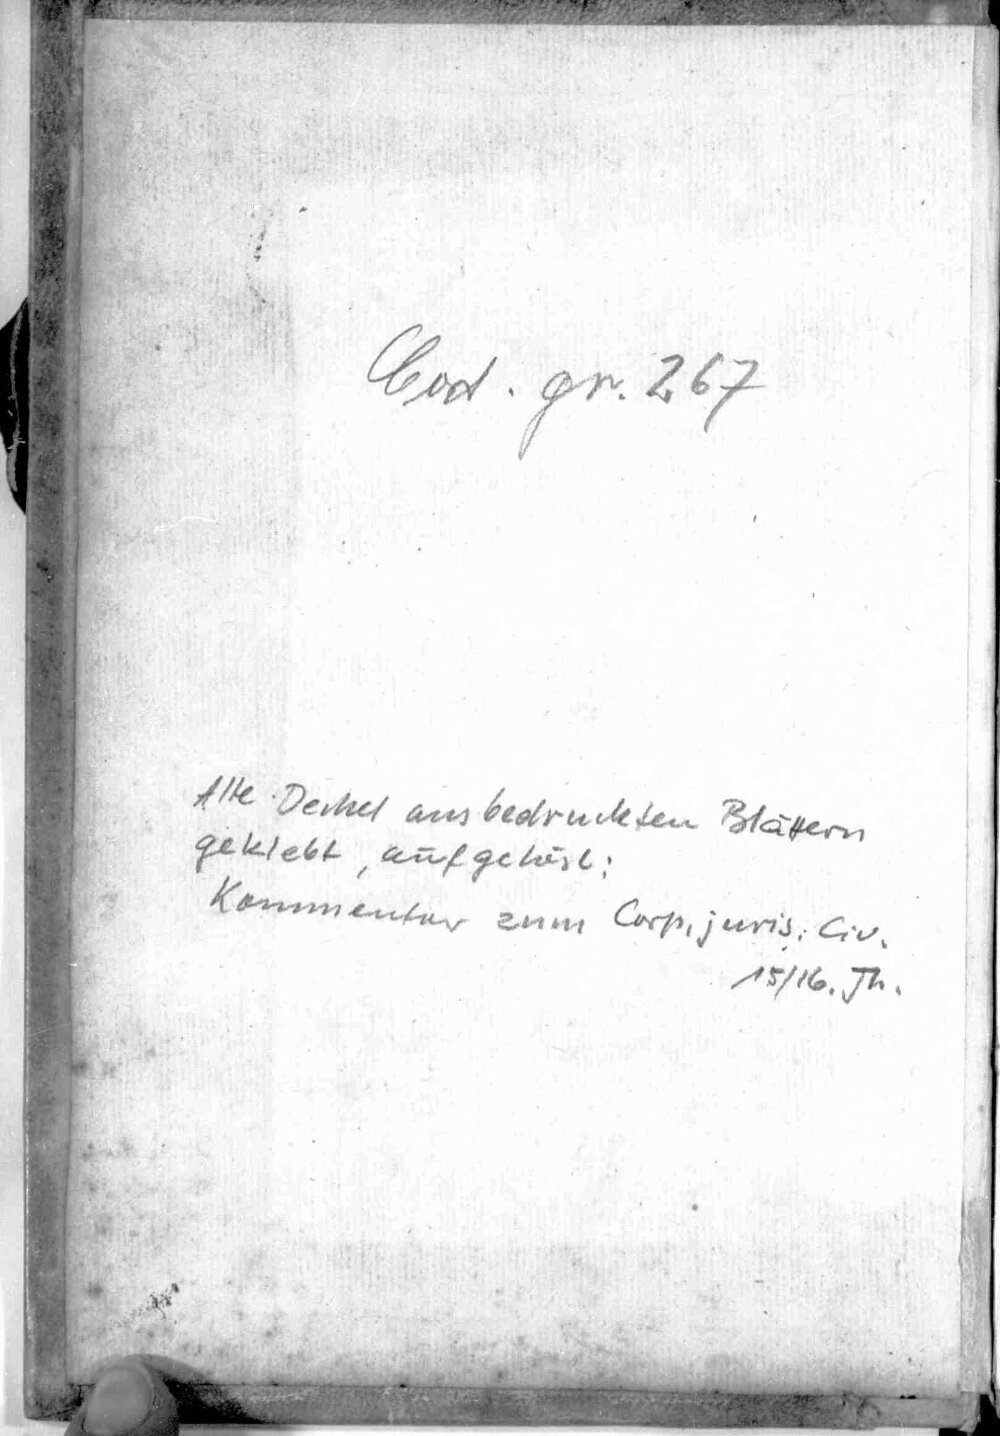 Cod. gr. 267
Alte Deckel aus bedruckten Blättern
geklebt, aufgelöst:
Kommentar zum Corp. juris. Civ.
15/16. Jh.